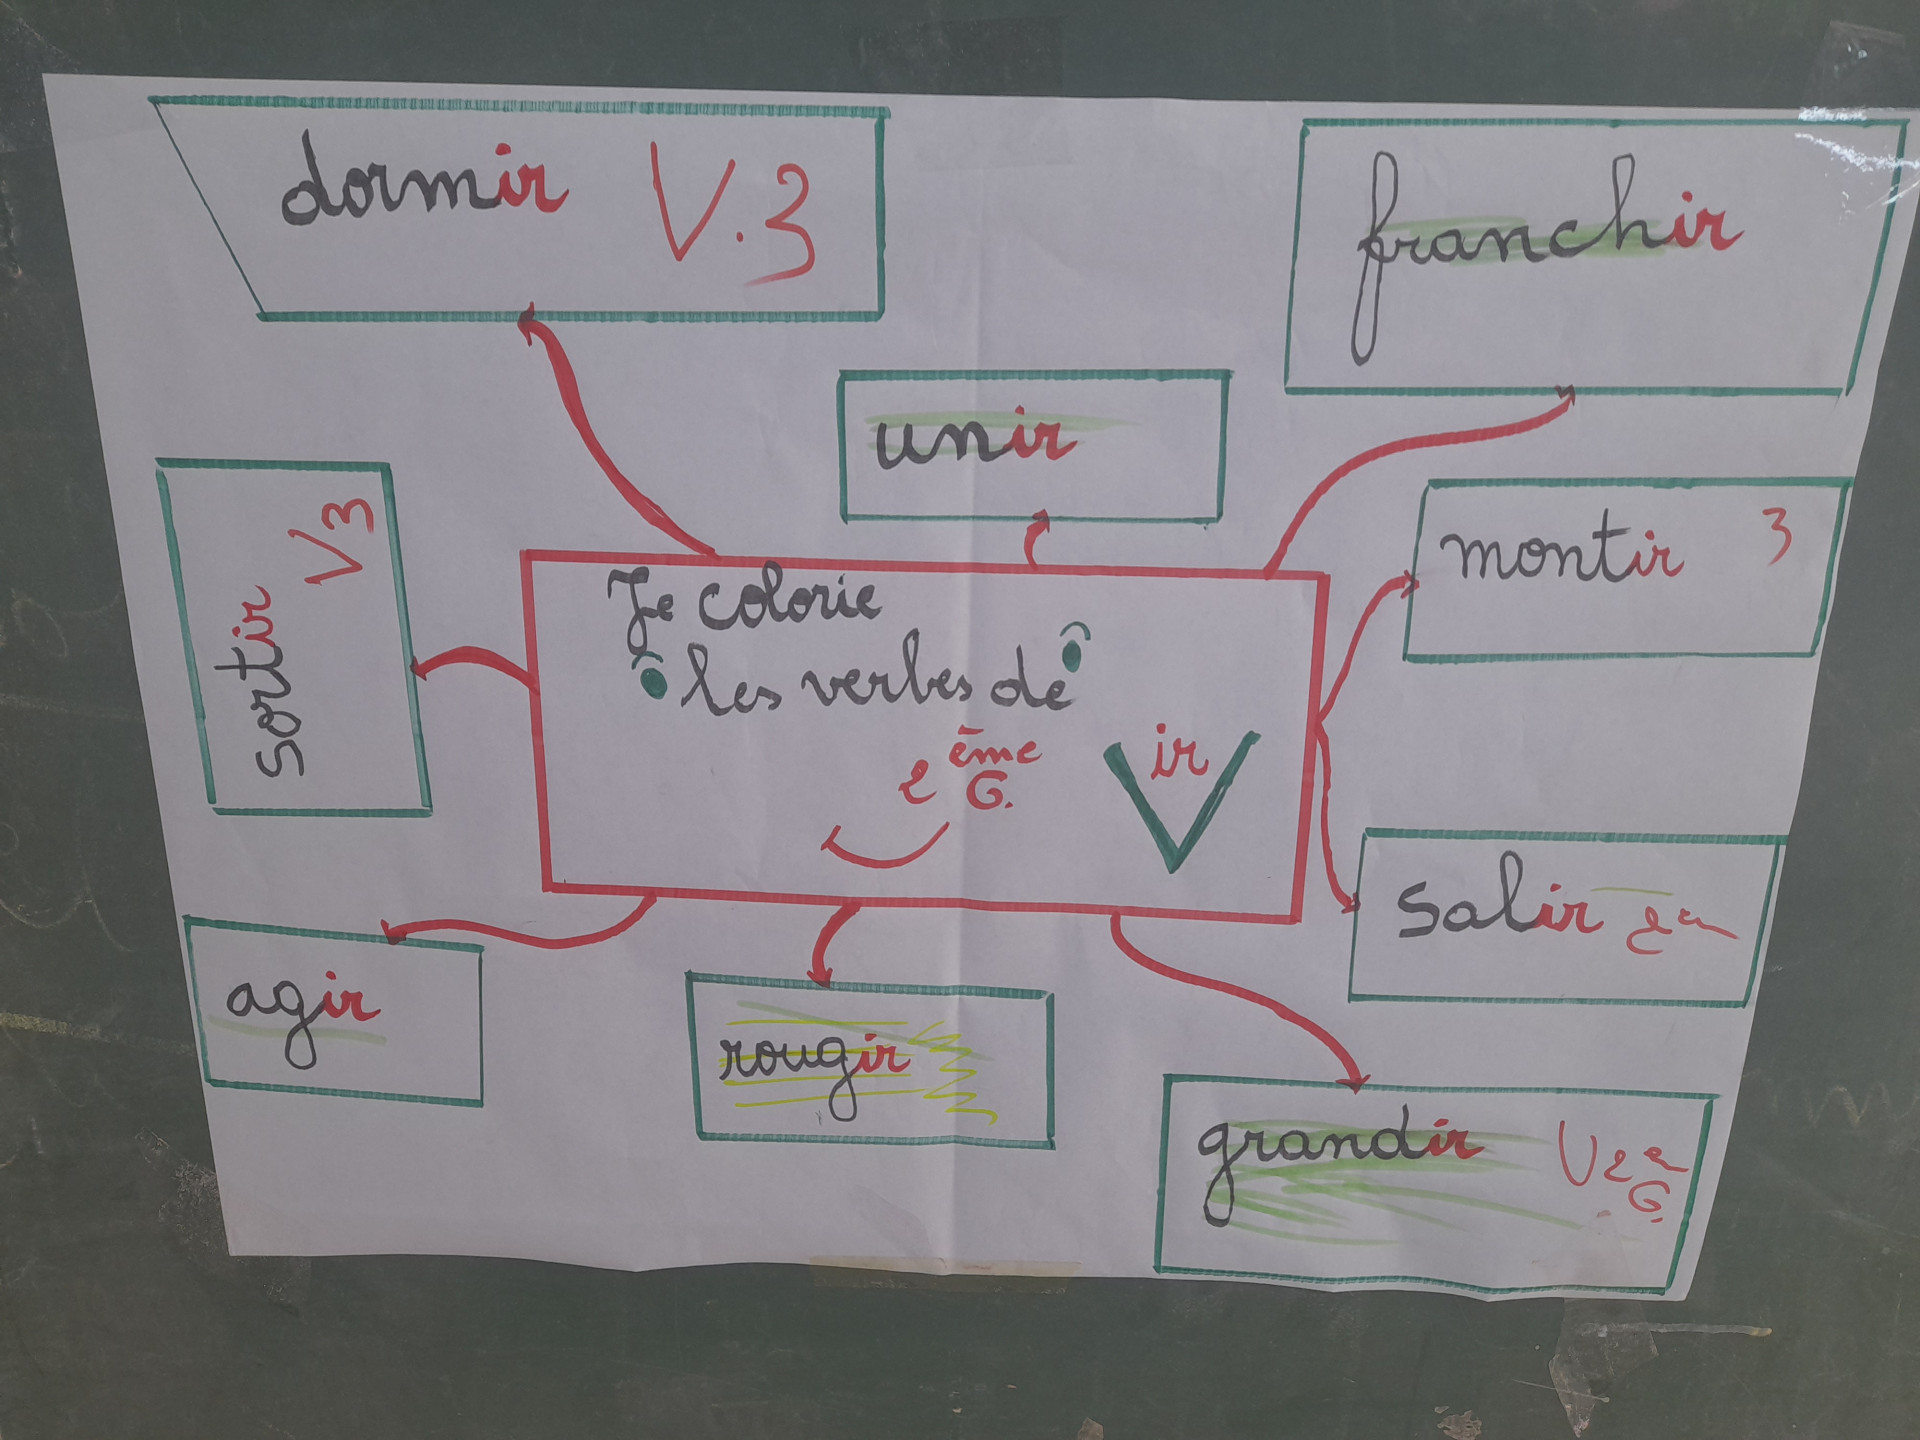 dormir V.3
franchir
unir
montir 3
sortir V3
Je colorie
les verbes de
2 ème G.
ir
salir 2em
agir
rougir
grandir V2e G.